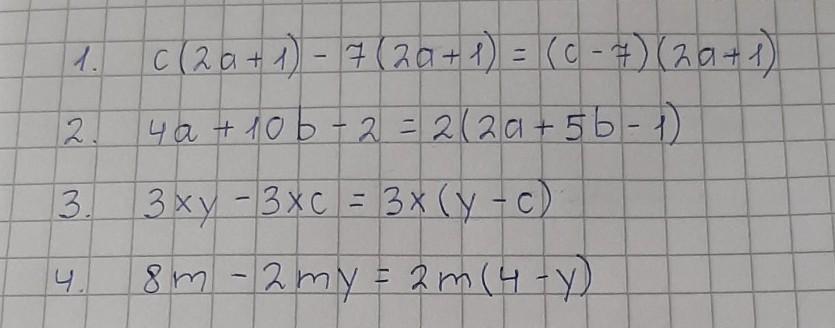 1. c(2a+1) - 7(2a+1) = (c-7)(2a+1)
2. 4a + 10b - 2 = 2(2a + 5b - 1)
3. 3xy - 3xc = 3x(y - c)
4. 8m - 2my = 2m(4 - y)